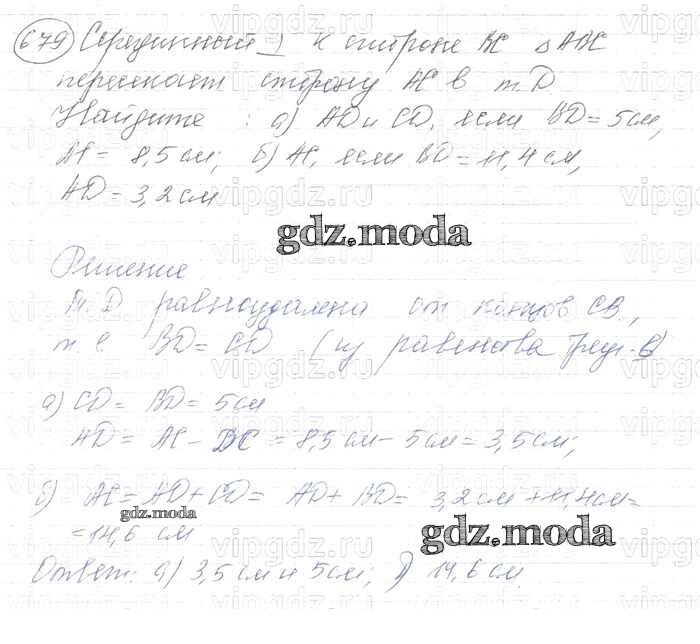 679 Серединный ⊥ к стороне BC △ ABC
пересекает сторону AC в т. D
Найдите : а) AD и CD, если BD = 5 см,
AC = 8,5 см; б) AC, если BD = 11,4 см,
AD = 3,2 см
gdz.moda
Решение
Т. D равноудалена от концов CB,
т. е. BD = CD (из равенства треуг-в)
а) CD = BD = 5 см
AD = AC - DC = 8,5 см - 5 см = 3,5 см;
б) AC = AD + CD = AD + BD = 3,2 см + 11,4 см =
gdz.moda
= 14,6 см
gdz.moda
Ответ: а) 3,5 см и 5 см; б) 14,6 см.